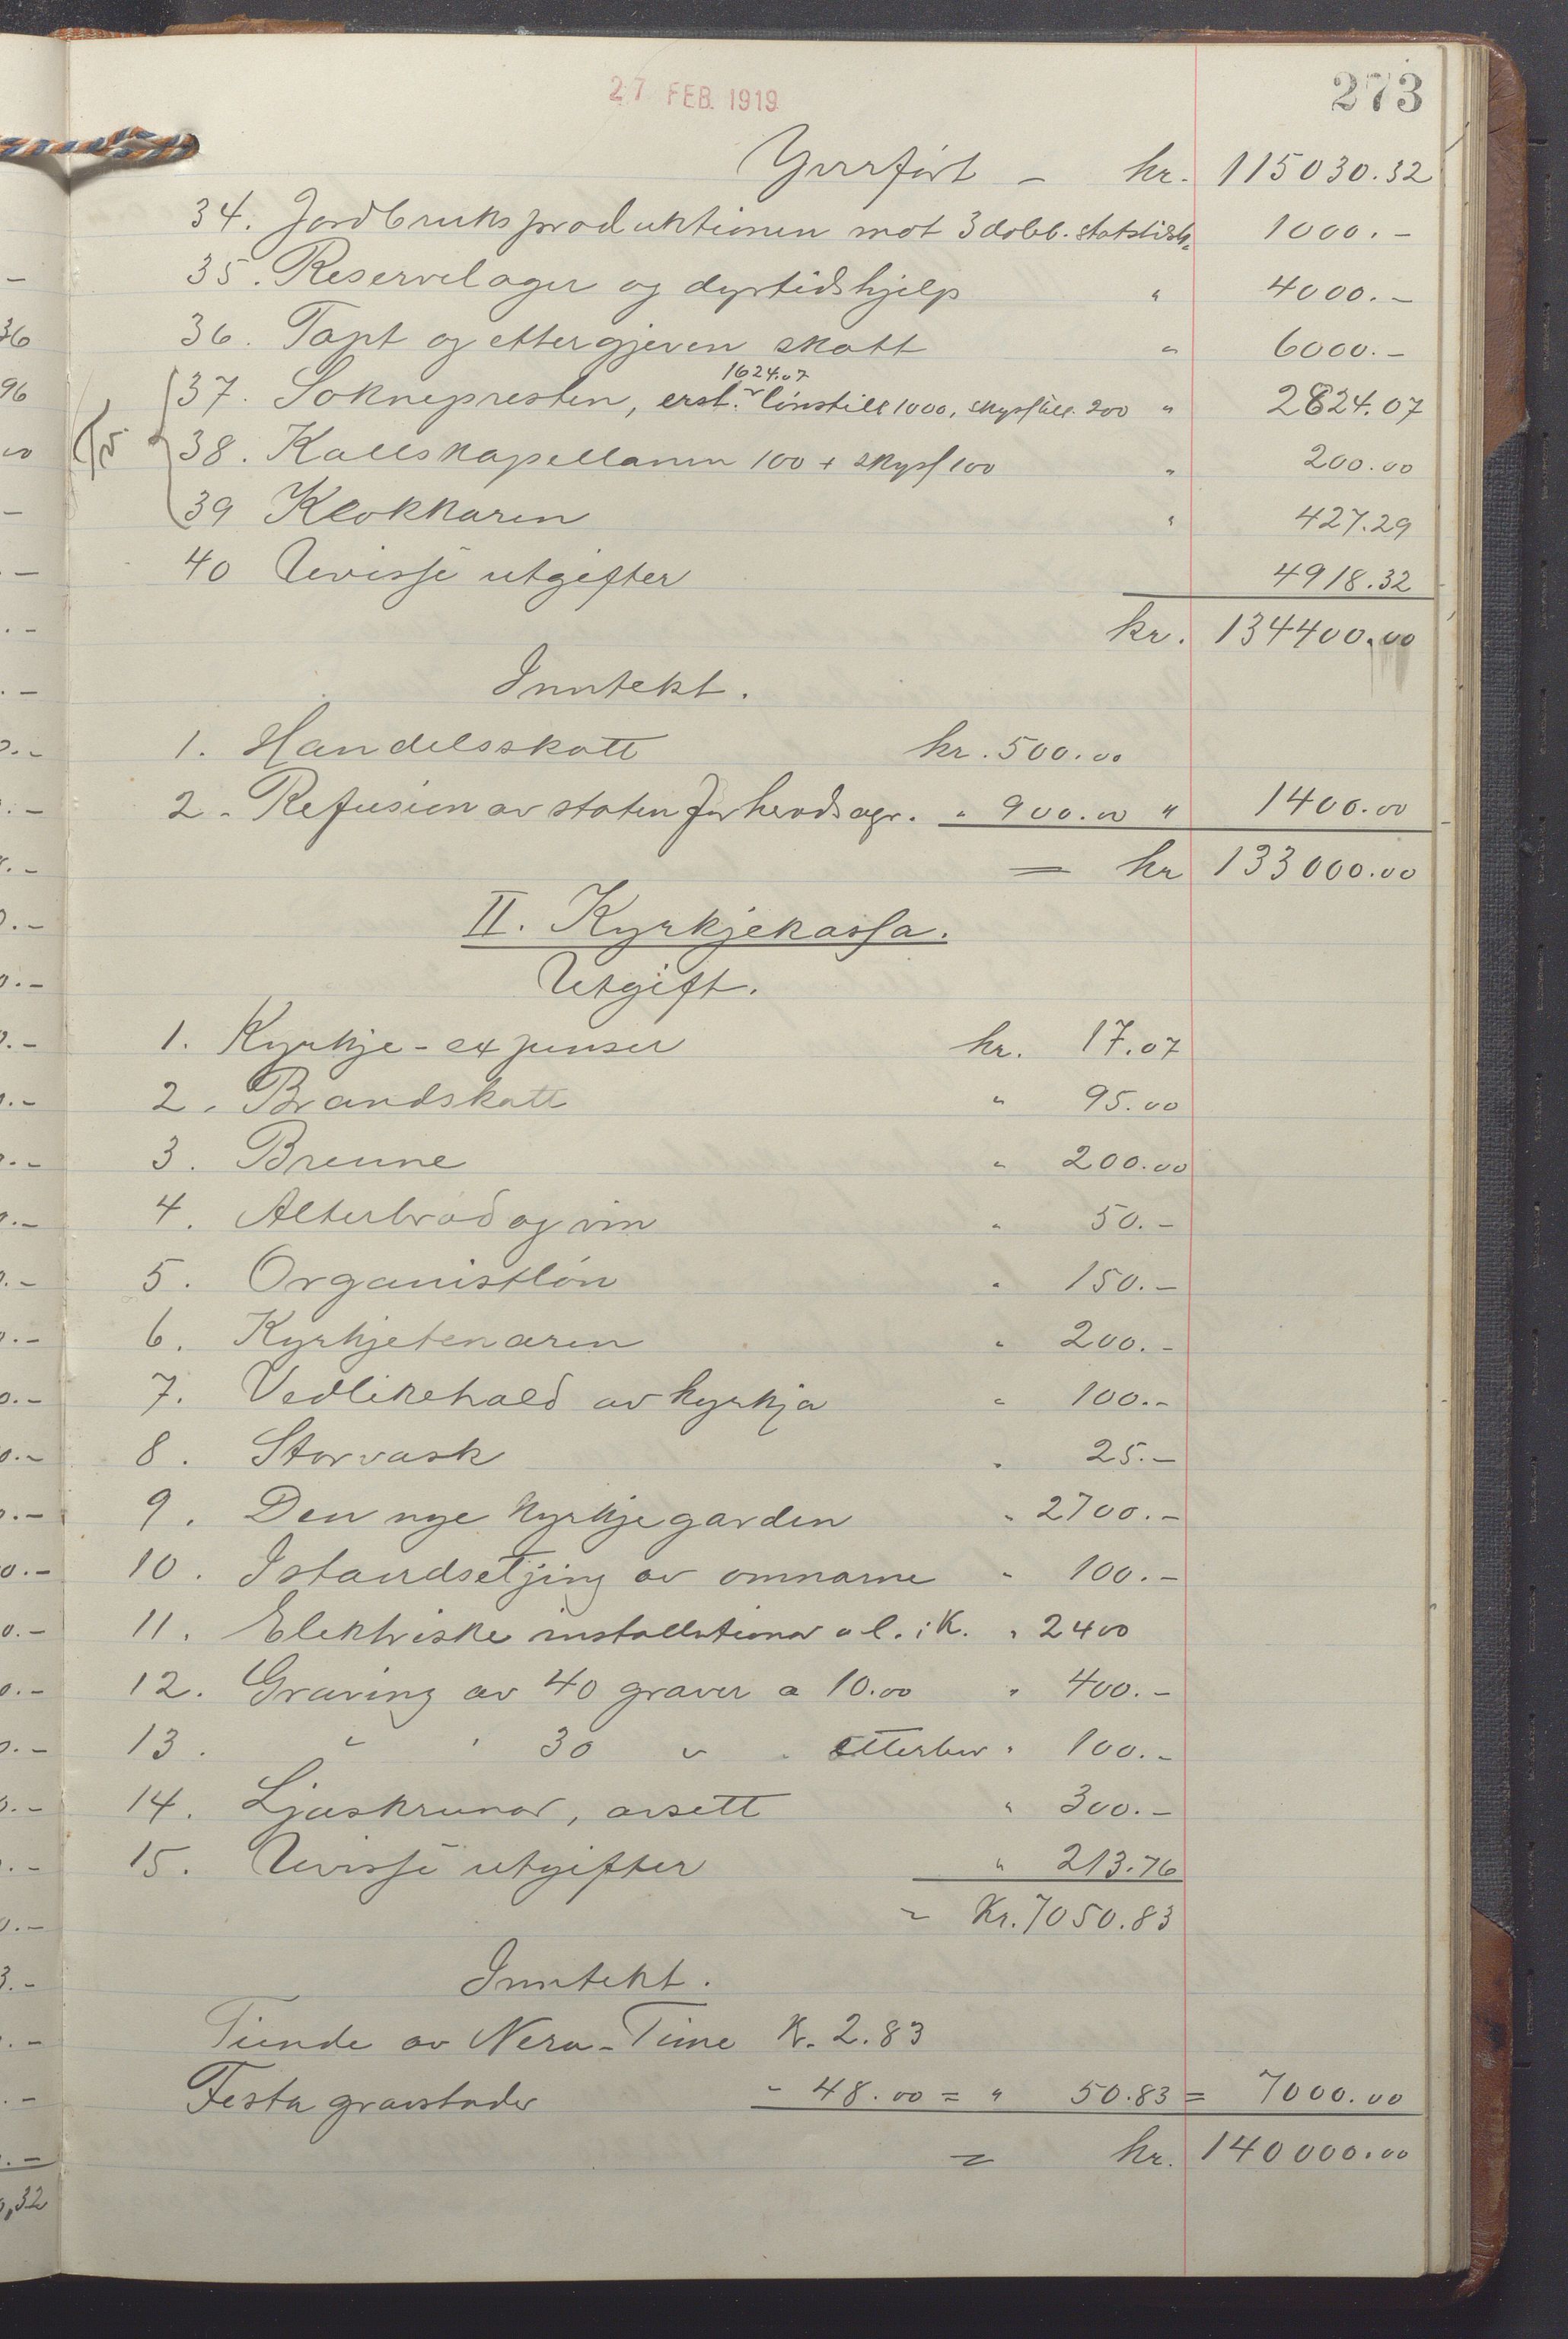 27 FEB. 1919
273
Yverfört – kr. 115030.32
34. Jordbruksproduktionen mot 3 dobb. statstilsk. 1000.–
35. Reservelager og dyrtidshjelp " 4000.–
36. Tapt og ettergjeven skatt " 6000.–
1624.07
37. Soknepresten, erst. lönstill 1000, skyss till. 200 " 2824.07
38. Kallskapellanen 100 + skyss 100 " 200.00
39 Klokkaren " 427.29
40 Uvisse utgifter 4918.32
kr. 134400.00
Inntekt.
1. Handelsskatt kr. 500.00
2. Refusion av staten for heradsagr. " 900.00 " 1400.00
= kr 133000.00
II. Kyrkjekassa.
Utgift.
1. Kyrkje-expenser kr. 17.07
2. Brandskatt " 95.00
3. Brenne " 200.00
4. Alterbrød og vin " 50.–
5. Organistlön " 150.–
6. Kyrkjetenaren " 200.–
7. Vedlikehald av kyrkja " 100.–
8. Storvask " 25.–
9. Den nye kyrkjegarden " 2700.–
10. Istandsetjing av omnarne " 100.–
11. Elektriske installationar o l. i K. " 2400
12. Graving av 40 graver a 10.00 " 400.–
13. " " 30 " " etterbev " 100.–
14. Ljoskrunor, avsett " 300.–
15. Uvisse utgifter " 213.76
= Kr. 7050.83
Inntekt.
Tiende av Nera-Time Kr. 2.83
Festa gravstader " 48.00 = " 50.83 = 7000.00
= kr. 140000.00